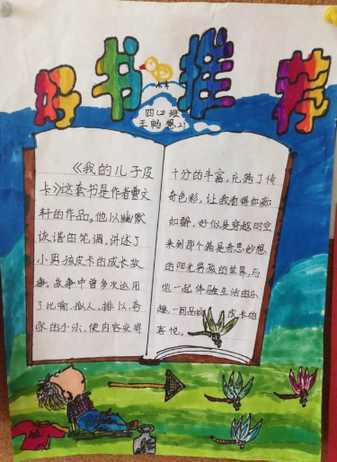 好书推荐
四(2)班
《我的儿子皮
卡》这套书是作者曹文
轩的作品。他以幽默
诙谐的笔调,讲述了
小男孩皮卡的成长故
事。故事中曾多次运用
了比喻、拟人、排比、夸
张的手法,使内容变得
十分的丰富,充满了传
奇色彩,让我看得如痴
如醉,好似是穿越时空
来到那个满是奇思妙想
的阳光男孩的世界,与
他一起体验生活的乐
趣,一同品 皮卡的
喜悦。